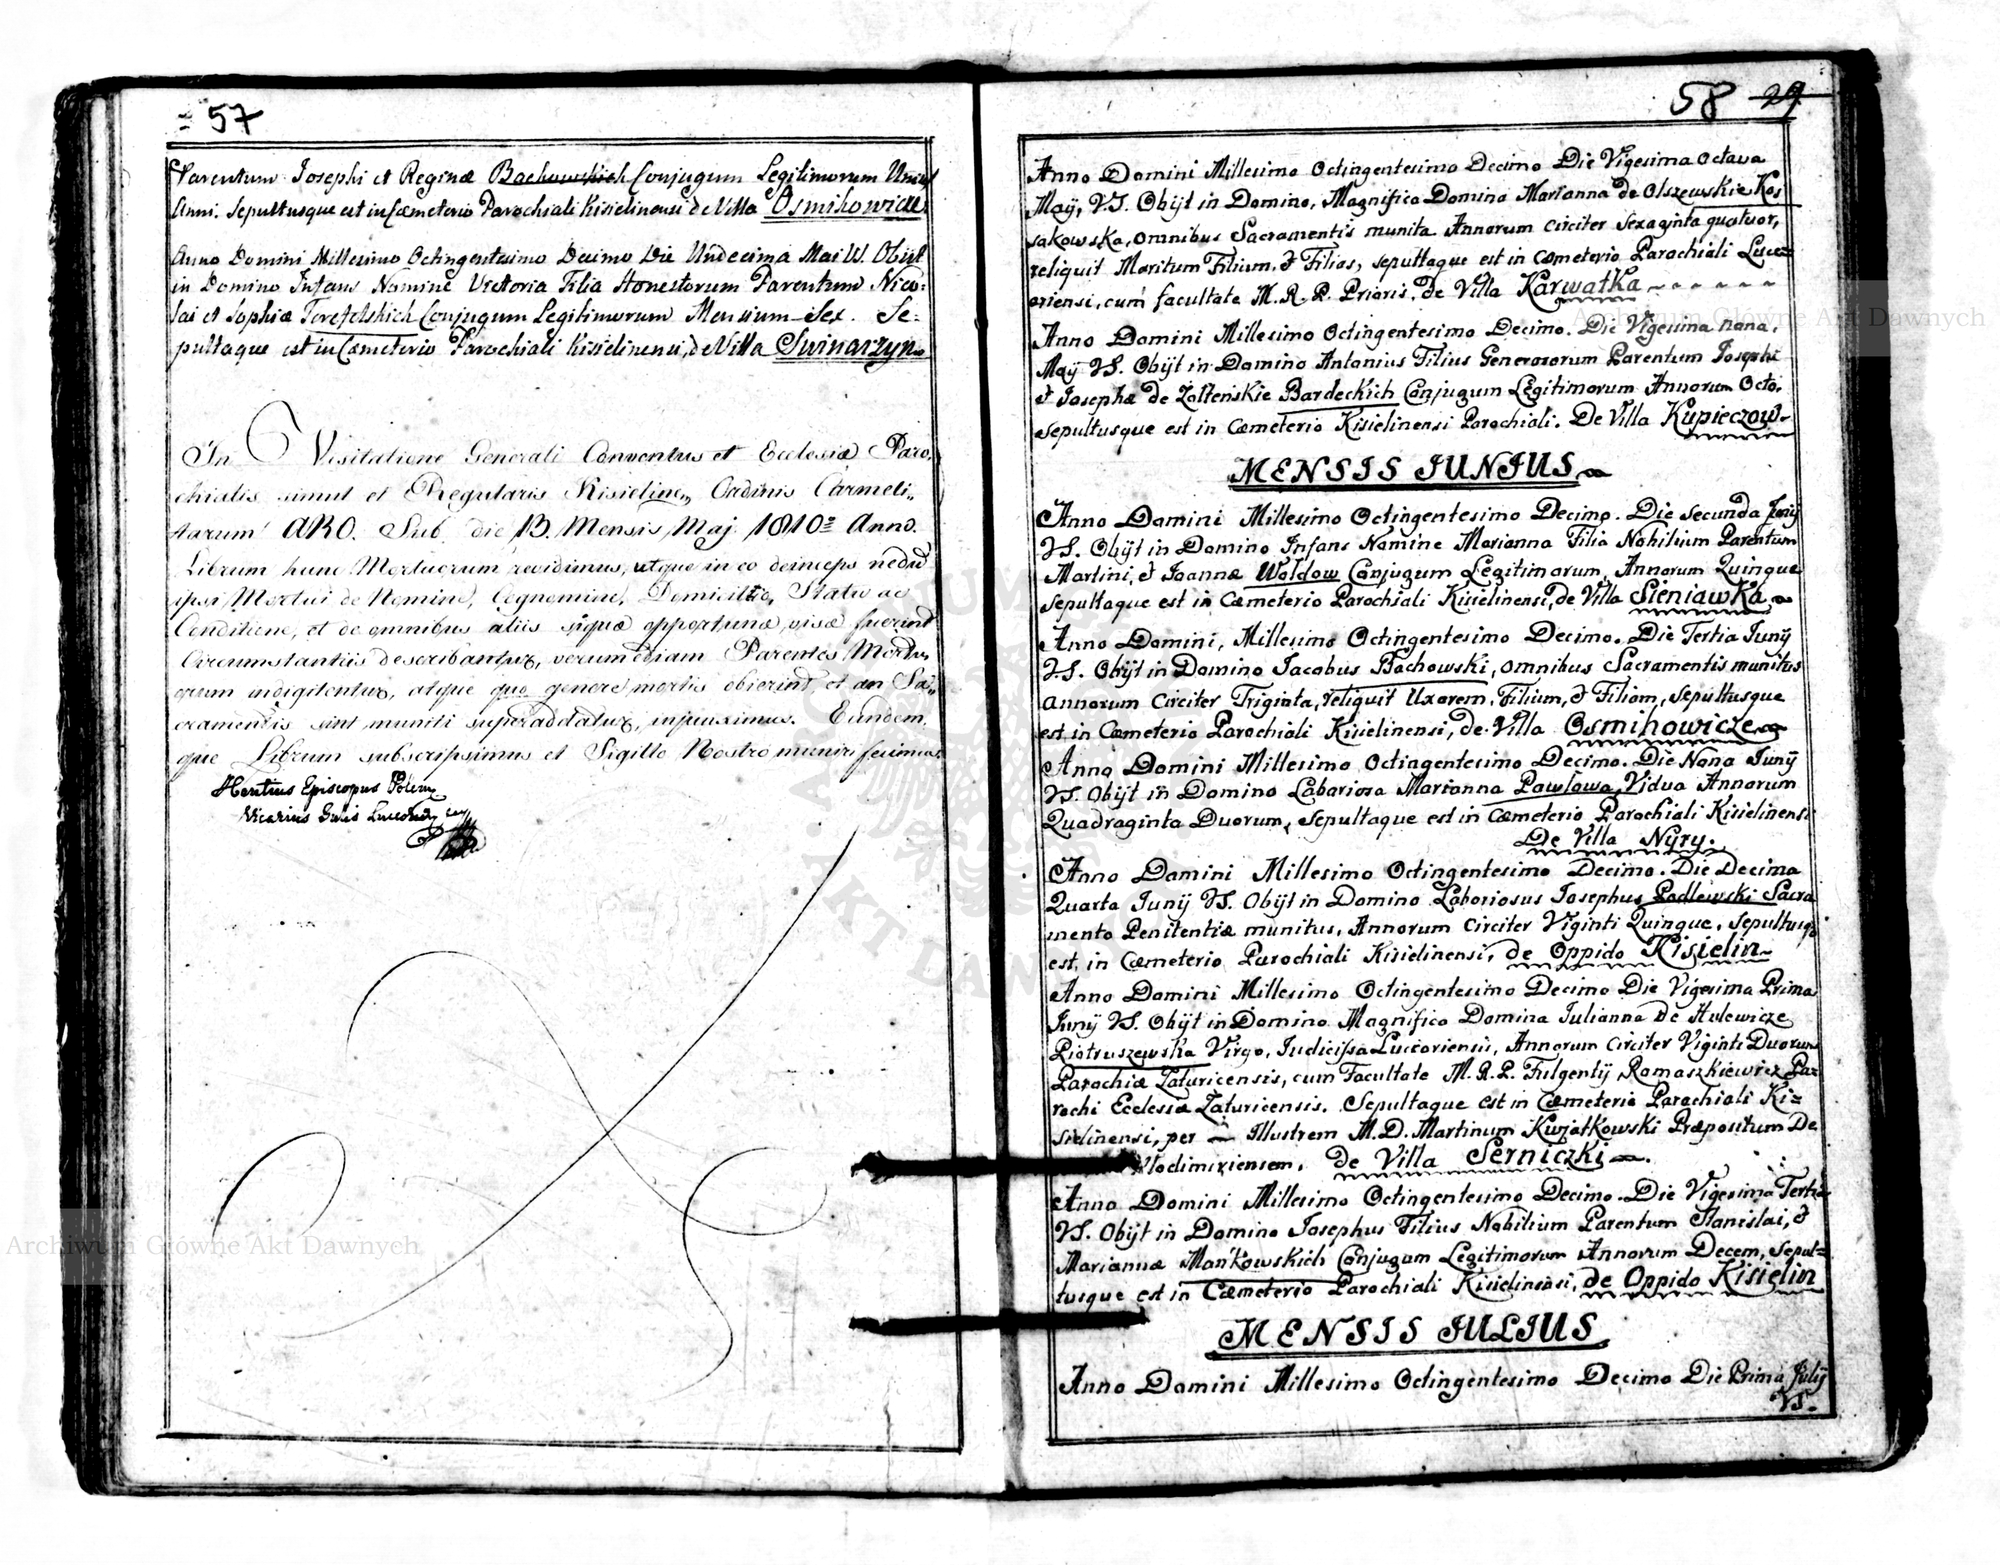 57
Parentum Josephi et Reginæ Bachowskich Conjugum Legitimorum Unius
Anni. Sepultusque est in Cæmeterio Parochiali Kisielinensi de Villa Osmihowicze
Anno Domini Millesimo Octingentesimo Decimo Die Undecima Mai VS. Obiit
in Domino Infans Nomine Victoria Filia Honestorum Parentum Nico=
lai et Sophiæ Conjugum Legitimorum Mensium Sex. Se=
pultaque est in Cæmeterio Parochiali Kisielinensi, de Villa Swinarzyn
In Visitatione Generali Conventus et Ecclesiæ Paro,
chialis simul et Regularis Kisielinen, Ordinis Carmeli,,
tarum ARO. Sub die 13. Mensis Maj 1810 Anno.
Librum hunc Mortuorum revidimus, utque in eo deinceps nedum
ipsi Mortui de Nomine, Cognomine, Domicilio, Statu ac
Conditione, et de omnibus aliis siquæ opportunæ, visæ fuerint
Circumstantiis describantur, verum etiam Parentes Mortu,
orum indigitentur, atque quo genere mortis obierint, et an Sa,,
cramentis sint muniti superaddatur, injunximus. Eundem,
que Librum subscripsimus et Sigillo Nostro muniri fecimus.
Episcopus
Vicarius Gnlis
58 29
Anno Domini Millesimo Octingentesimo Decimo Die Vigesima Octava
Maij, VS. Obijt in Domino, Magnifica Domina Marianna de Olszewskie Kos
sakowska, omnibus Sacramentis munita Annorum circiter Sexaginta quatuor,
reliquit Maritum Filium, & Filias, sepultaque est in Cæmeterio Parochiali Luce=
oriensi, cum facultate M. R. P. Prioris, de Villa Karwatka
Anno Domini Millesimo Octingentesimo Decimo. Die Vigesima nona,
Maij VS. Obijt in Domino Antonius Filius Generosorum Parentum Josephi
& Josephæ de Zoltenskie Bardeckich Conjugum Legitimorum Annorum Octo,
sepultusque est in Cæmeterio Kisielinensi Parochiali. De Villa Kupieczow
MENSIS IUNIUS
Anno Domini Millesimo Octingentesimo Decimo. Die Secunda Junij
VS. Obijt in Domino Infans Nomine Marianna Filia Nobilium Parentum
Martini, & Joannæ Woldow Conjugum Legitimorum, Annorum Quinque
sepultaque est in Cæmeterio Parochiali Kisielinensi, de Villa Sieniawka
Anno Domini, Millesimo Octingentesimo Decimo. Die Tertia Junij
VS. Obijt in Domino Jacobus Bachowski, omnibus Sacramentis munitus
annorum circiter Triginta, reliquit Uxorem, Filium, & Filiam, sepultusque
est in Cæmeterio Parochiali Kisielinensi, de Villa Osmihowicze
Anno Domini Millesimo Octingentesimo Decimo. Die Nona Junij
VS. Obijt in Domino Laboriosa Marianna Pawlowa, Vidua Annorum
Quadraginta Duorum, sepultaque est in Cæmeterio Parochiali Kisielinensi
De Villa Nyry.
Anno Domini Millesimo Octingentesimo Decimo. Die Decima
Quarta Junij VS. Obijt in Domino Laboriosus Josephus Podlewski Sacra
mento Penitentiæ munitus, Annorum circiter Viginti Quinque, sepultusq
est, in Cæmeterio Parochiali Kisielinensi, de Oppido Kisielin
Anno Domini Millesimo Octingentesimo Decimo Die Vigesima Prima
Junij VS. Obijt in Domino Magnifica Domina Julianna de Hulewicze
Piotruszewska Virgo, Judicissa Luceoriensis, Annorum circiter Viginti Duorum
Parochiæ Zaturicensis, cum Facultate M. R. P. Fulgentij Romaszkiewicz Pa=
rochi Ecclesiæ Zaturicensis. Sepultaque est in Cæmeterio Parochiali Ki=
sielinensi, per Illustrem M. D. Martinum Kwjatkowski Præpositum De
Vlodimiriensem, de Villa Serniczki
Anno Domini Millesimo Octingentesimo Decimo. Die Vigesima Tertia
VS. Obijt in Domino Josephus Filius Nobilium Parentum Stanislai, &
Mariannæ Mańkowskich Conjugum Legitimorum Annorum Decem, Sepul=
tusque est in Cæmeterio Parochiali Kisielinensi, de Oppido Kisielin
MENSIS IULIUS
Anno Domini Millesimo Octingentesimo Decimo Die Prima Julij
VS.
Archiwum Główne Akt Dawnych
Archiwum Główne Akt Dawnych